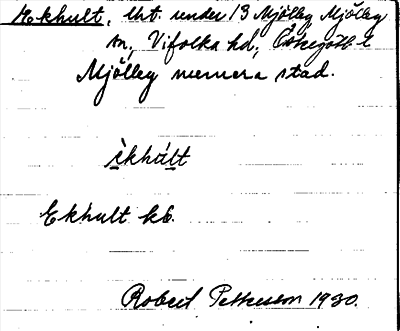 Ekhult, lht. under 13 Mjölby Mjölby
sn, Vifolka hd, Östergötl. l
Mjölby numera stad.
ìkhúlt
Ekhult kb.
Robert Pettersson 1930.